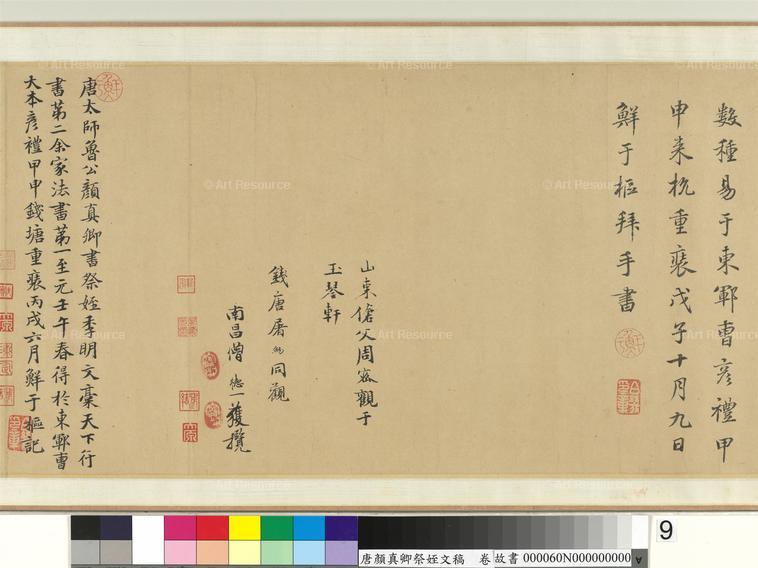 數種易于東鄆曹彥禮甲
申來杭重裝戊子十月九日
鮮于樞拜手書
山東傖父周密觀于
玉琴軒
錢唐屠約同觀
南昌僧德一獲攬
唐太師魯公顏真卿書祭姪季明文稾天下行
書第二余家法書第一至元壬午春得於東鄆曹
大本彥禮甲申錢塘重裝丙戌六月鮮于樞記
© Art Resource
© Art Resource
© Art Resource
© Art Resource
© Art Resource
© Art Resource
© Art Resource
© Art Resource
© Art Resource
9
唐顏真卿祭姪文稿 卷 故書 000060N000000000